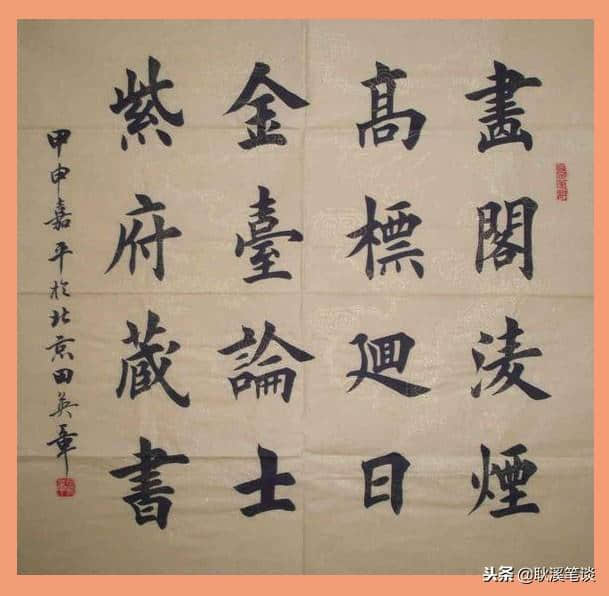 畫閣淩煙
高標迴日
金臺論士
紫府蔵書
甲申嘉平於北京田英章
头条 @耿溪笔谈